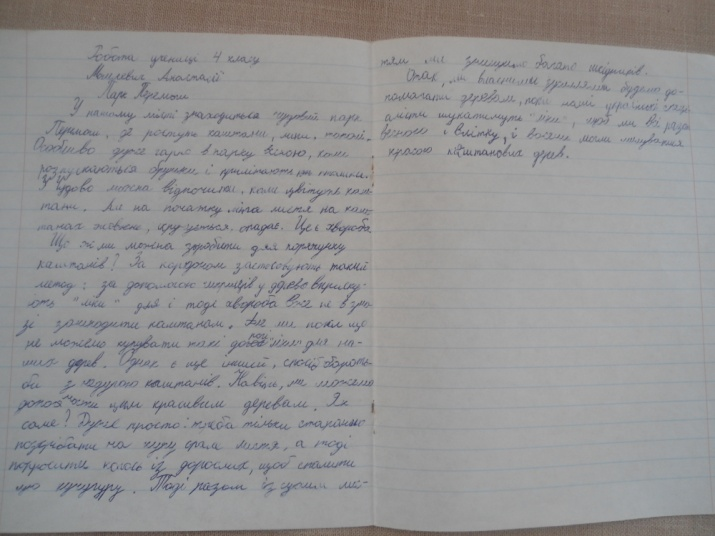 Робота учениці 4 класу
Анастасії
Парк
У нашому місті знаходиться чудовий парк
де ростуть каштани, липи, тополі.
Особливо дуже гарно в парку весною, коли
розпускаються бруньки і прилітають пташки.
Чудово можна відпочити, коли цвітуть каш-
тани. Але на початку літа листя на каш-
танах жовтіє, опадає. Це є хвороба.
Що ж ми можемо зробити для порятунку
каштанів? За кордоном застосовують такий
метод: за допомогою шприців у дерево вприску-
ють "ліки" для і тоді хвороба вже не в змо-
зі зашкодити каштанам. Але ми поки ще
не можемо купувати такі дорогі "ліки" для на-
ших дерев. Однак є ще інший, спосіб бороть-
би з хворобою каштанів. Навіть, ми можемо
допомогти цим красивим деревам. Як
саме? Дуже просто: треба тільки старанно
позгрібати на купу опале листя, а тоді
попросити когось із дорослих, щоб спалити
цю кучугуру. Тоді разом із сухим лис-
тям ми знищимо багато шкідників.
Отак, ми власними зусиллями будемо до-
помагати деревам, поки наші українські спеці-
алісти шукатимуть "ліки", щоб ми всі разом
весною і влітку, і восени могли милуватися
красою каштанових дерев.